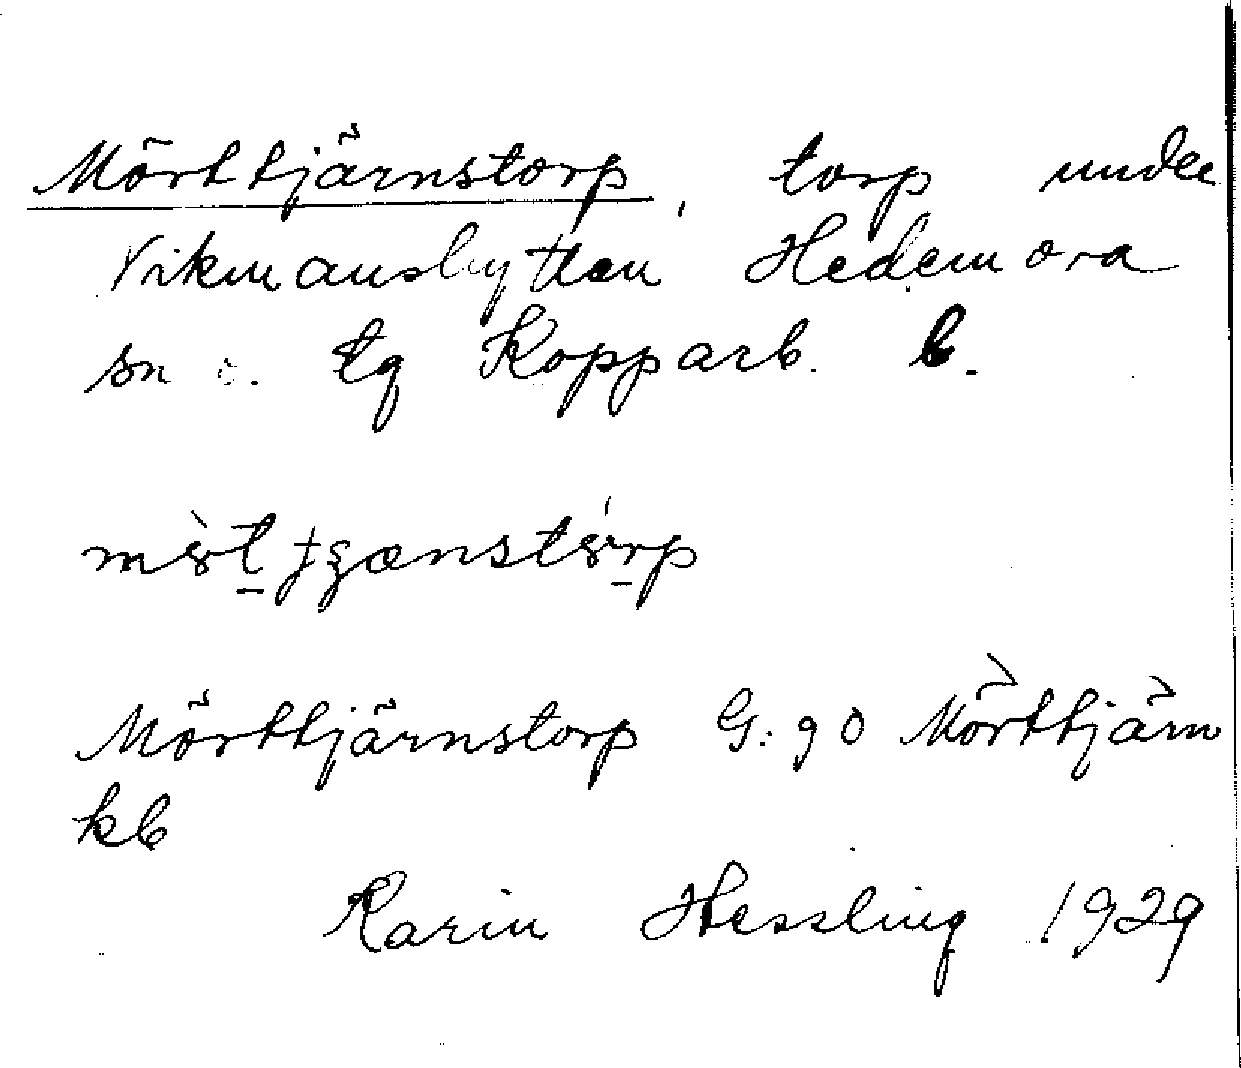 Mörttjärnstorp, torp under
Vikmanshyttan Hedemora
sn o. tg Kopparb. l.
Mörttjärnstorp G: 90 Mörttjärn
kb
Karin Hessling 1929